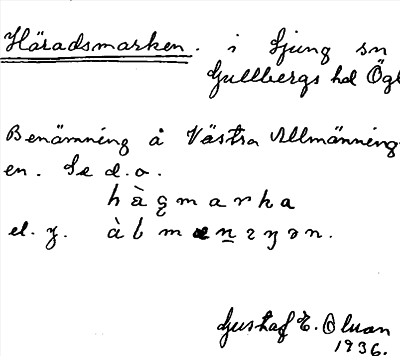 Häradsmarken. i Ljung sn
Gullbergs hd Ögl
Benämning å Västra Allmänning-
en. Se d.o.
hàꞩmarka
el. y. àlmænɩŋən.
Gustaf E. Olson
1936.